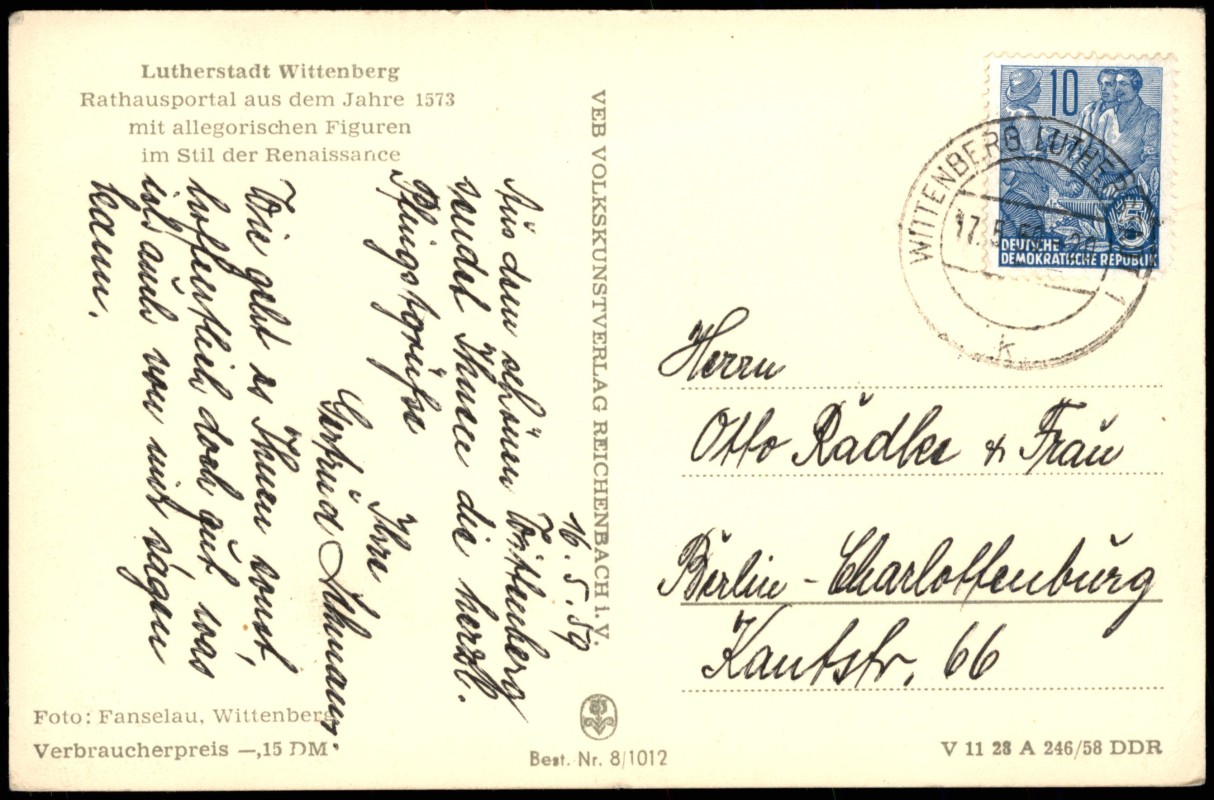 Lutherstadt Wittenberg
Rathausportal aus dem Jahre 1573
mit allegorischen Figuren
im Stil der Renaissance
16.5.59
Aus dem schönen Wittenberg
sendet Ihnen die herzl.
Pfingstgrüße
Ihre
Gertrud
Wie geht es Ihnen sonst,
hoffentlich doch gut was
ich auch von mir sagen
kann.
Foto: Fanselau, Wittenberg
Verbraucherpreis —,15 DM
VEB VOLKSKUNSTVERLAG REICHENBACH i. V.
Best. Nr. 8/1012
10
5
DEUTSCHE
DEMOKRATISCHE REPUBLIK
WITTENBERG LUTHERSTADT
17.5.59
k
Herrn
Otto Rädler & Frau
Berlin - Charlottenburg
Kantstr. 66
V 11 28 A 246/58 DDR